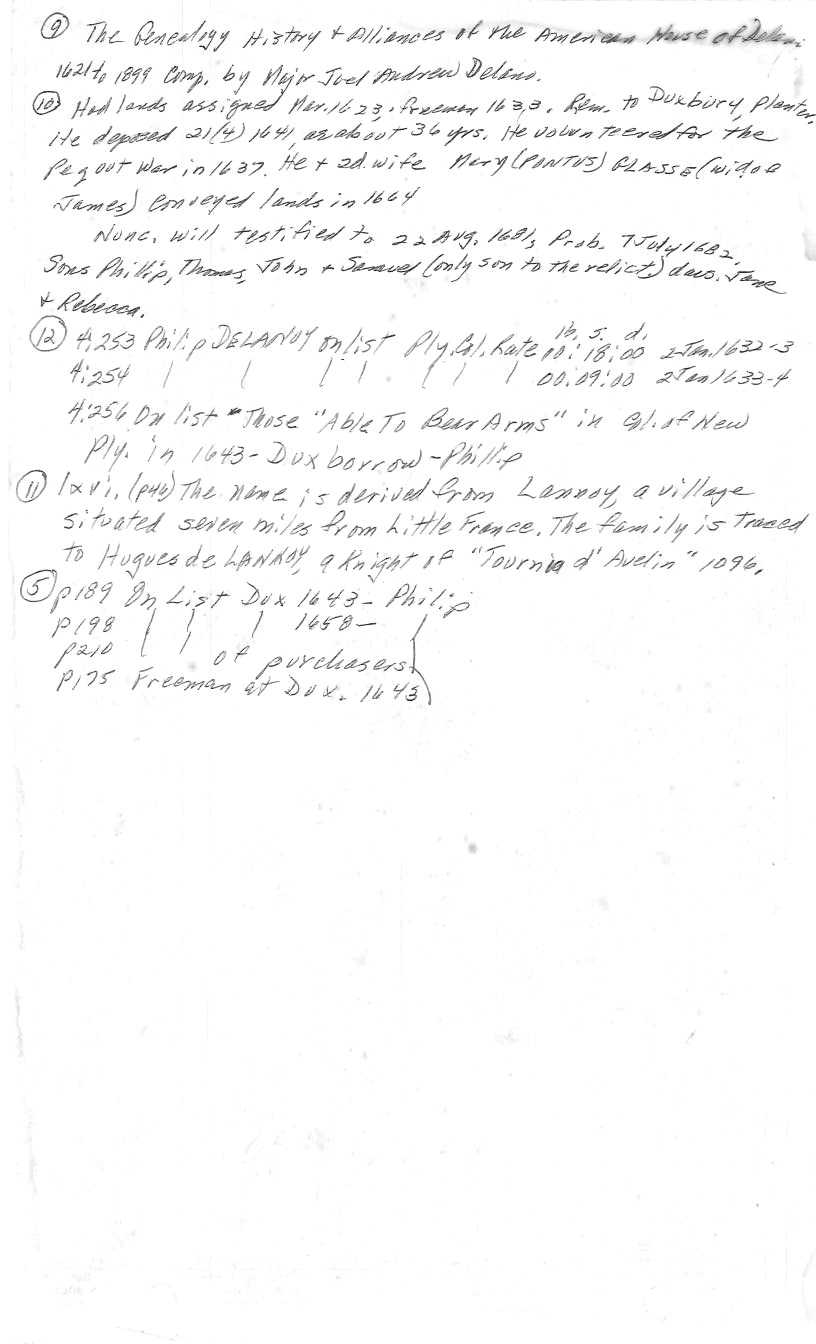 ⑨ The Genealogy History & Alliances of the American House of Delano
1621 to 1899 Comp. by Major Joel Andrew Delano.
⑩ Had lands assigned Mar. 1623, freeman 1633. Rem. to Duxbury, Planter,
He deposed 21(4) 1641, as about 36 yrs. He volunteered for the
Pequot War in 1637. He & 2d. wife Mary (PONTUS) GLASSE (wid of
James) Conveyed lands in 1664
Nunc. will testified to 22 Aug. 1681, Prob. 7 July 1682.
Sons Phillip, Thomas, John & Samuel (only son to the relict) daus. Jane
& Rebecca.
lb. s. d.
⑫ 4:253 Philip DELANOY on list Ply. Col. Rate 00:18:00 2 Jan. 1632-3
4:254 | | | | | | | 00:09:00 2 Jan 1633-4
4:256 On list "Those "Able To Bear Arms" in Col. of New
Ply. in 1643 - Duxborrow - Phillip
⑪ lxvi, (p46) The name is derived from Lannoy, a village
situated seven miles from Little France. The family is traced
to Hugues de LANNOY, a Knight of "Tournia d' Avelin" 1096,
⑤ p189 On List Dux 1643 - Philip
p198 | | | 1658 - |
p210 | | of purchasers
p175 Freeman at Dux. 1643